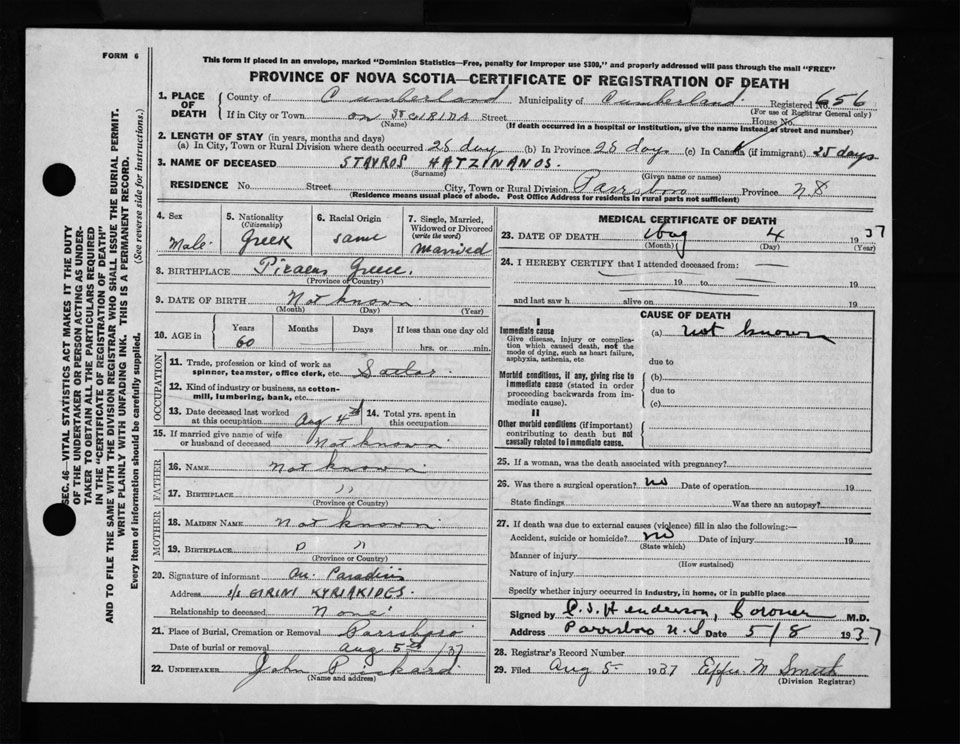 FORM 6
This form if placed in an envelope, marked "Dominion Statistics—Free, penalty for improper use $300," and properly addressed will pass through the mail "FREE"
PROVINCE OF NOVA SCOTIA—CERTIFICATE OF REGISTRATION OF DEATH
SEC. 46—VITAL STATISTICS ACT MAKES IT THE DUTY
OF THE UNDERTAKER OR PERSON ACTING AS UNDER-
TAKER TO OBTAIN ALL THE PARTICULARS REQUIRED
IN THE "CERTIFICATE OF REGISTRATION OF DEATH"
AND TO FILE THE SAME WITH THE DIVISION REGISTRAR WHO SHALL ISSUE THE BURIAL PERMIT.
WRITE PLAINLY WITH UNFADING INK. THIS IS A PERMANENT RECORD.
Every item of information should be carefully supplied. (See reverse side for instructions.)
1. PLACE OF DEATH
County of Cumberland Municipality of Cumberland Registered No. 656
(For use of Registrar General only)
If in City or Town on SS Street House No.
(Name) (If death occurred in a hospital or institution, give the name instead of street and number)
2. LENGTH OF STAY (in years, months and days)
(a) In City, Town or Rural Division where death occurred 28 days (b) In Province 28 days (c) In Canada (if immigrant) 28 days
3. NAME OF DECEASED STAVROS HATZINANOS.
(Surname) (Given name or names)
RESIDENCE No. Street City, Town or Rural Division Parrsboro Province N S
(Residence means usual place of abode. Post Office Address for residents in rural parts not sufficient)
4. Sex
Male
5. Nationality
(Citizenship)
Greek
6. Racial Origin
same
7. Single, Married, Widowed or Divorced
(write the word)
Married
8. BIRTHPLACE Piraeus Greece.
(Province or Country)
9. DATE OF BIRTH Not known
(Month) (Day) (Year)
10. AGE in
Years Months Days If less than one day old
60 hrs. or min.
OCCUPATION
11. Trade, profession or kind of work as
spinner, teamster, office clerk, etc. Sailor
12. Kind of industry or business, as cotton-
mill, lumbering, bank, etc.
13. Date deceased last worked
at this occupation Aug 4th
14. Total yrs. spent in
this occupation
15. If married give name of wife
or husband of deceased Not known
FATHER
16. NAME Not known
17. BIRTHPLACE "
(Province or Country)
MOTHER
18. MAIDEN NAME Not known
19. BIRTHPLACE " "
(Province or Country)
20. Signature of informant
Address EIRINI KYRIAKIDES.
Relationship to deceased None
21. Place of Burial, Cremation or Removal Parrsboro
Date of burial or removal Aug 5th /37
22. UNDERTAKER John
(Name and address)
MEDICAL CERTIFICATE OF DEATH
23. DATE OF DEATH Aug 4 1937
(Month) (Day) (Year)
24. I HEREBY CERTIFY that I attended deceased from
19 to 19
and last saw h alive on 19
CAUSE OF DEATH
I
Immediate cause
Give disease, injury or complica-
tion which caused death, not the
mode of dying, such as heart failure,
asphyxia, asthenia, etc.
(a) not known
due to
Morbid conditions, if any, giving rise to
immediate cause (stated in order
proceeding backwards from im-
mediate cause).
(b)
due to
(c)
II
Other morbid conditions (if important)
contributing to death but not
causally related to immediate cause.
25. If a woman, was the death associated with pregnancy?
26. Was there a surgical operation? no Date of operation 19
State findings Was there an autopsy?
27. If death was due to external causes (violence) fill in also the following:—
Accident, suicide or homicide? no Date of injury 19
(State which)
Manner of injury
(How sustained)
Nature of injury
Specify whether injury occurred in industry, in home, or in public place
Signed by Henderson, Coroner M.D.
Address Parrsboro N.S Date 5/8 1937
28. Registrar's Record Number
29. Filed Aug 5- 1937 Effie M Smith
(Division Registrar)